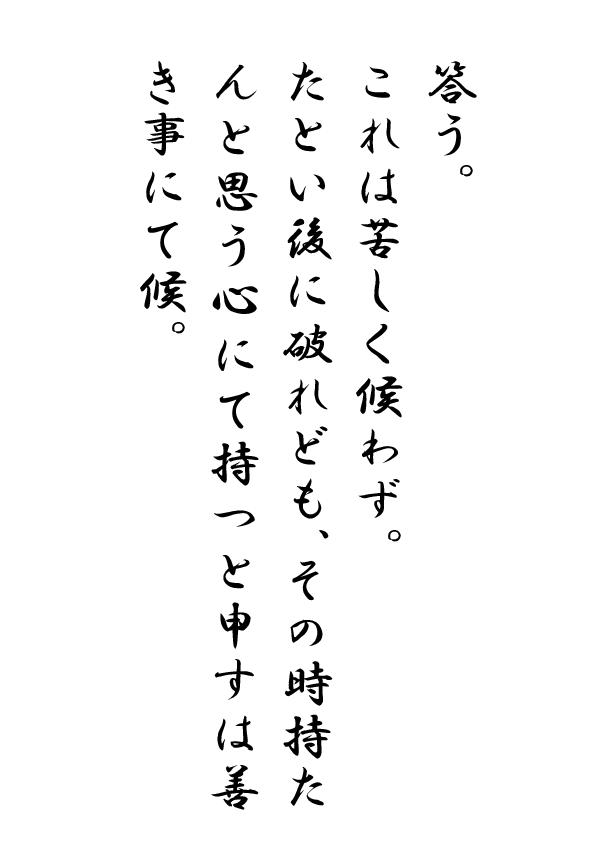 答う。
これは苦しく候わず。
たとい後に破れども、その時持た
んと思う心にて持つと申すは善
き事にて候。